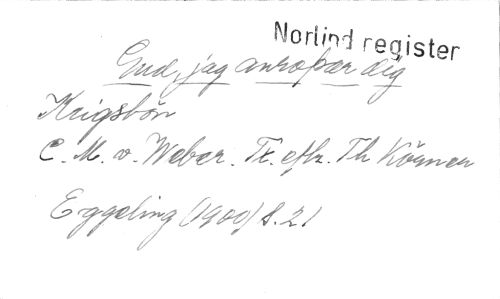 Norlind register
Gud, jag anropar dig
Krigsbön
C. M. v. Weber. Tx. efter. Th Körner
Eggeling (1900) S. 21